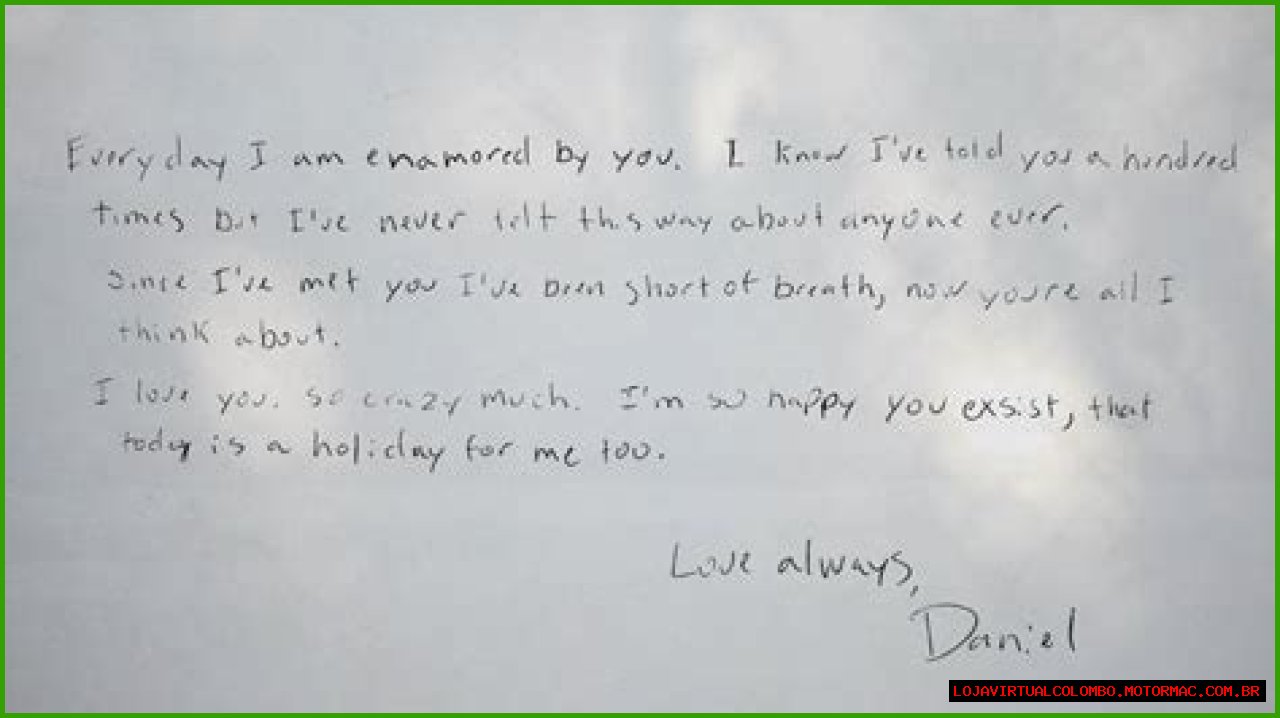 Everyday I am enamored by you. I know I've told you a hundred
times but I've never felt this way about anyone ever.
Since I've met you I've been short of breath, now youre all I
think about.
I love you. so crazy much. I'm so happy you exsist, that
today is a holiday for me too.
Love always,
Daniel
LOJAVIRTUALCOLOMBO.MOTORMAC.COM.BR